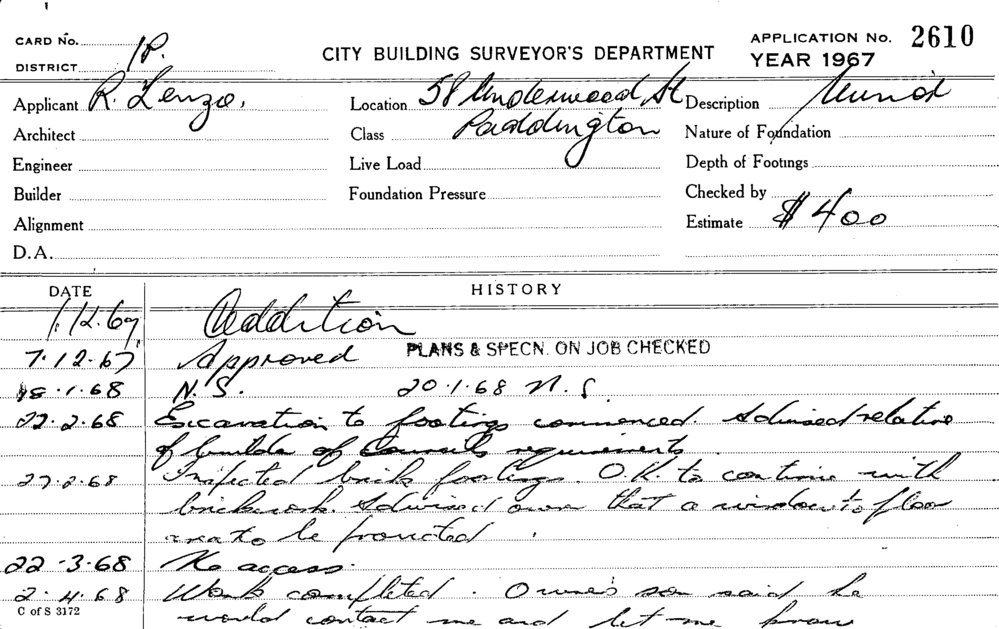 CARD No. 1P. CITY BUILDING SURVEYOR'S DEPARTMENT APPLICATION No. 2610
DISTRICT YEAR 1967
Applicant R. Lenzo, Location 58 Underwood St Description
Architect Class Paddington Nature of Foundation
Engineer Live Load Depth of Footings
Builder Foundation Pressure Checked by
Alignment Estimate $ 400
D.A.
DATE HISTORY
1.12.67 Addition
7.12.67 Approved PLANS & SPECN. ON JOB CHECKED
18.1.68 N.S. 20.1.68 N.S.
22.2.68 Excavation to footings commenced. Advised relative
of builder of Councils requirements.
27.2.68 Inspected brick footings. O.K. to continue with
brickwork. Advised owner that a window to floor
area to be provided.
22.3.68 No access.
2.4.68 Work completed. Owner's son said he
C of S 3172
would contact me and let me know